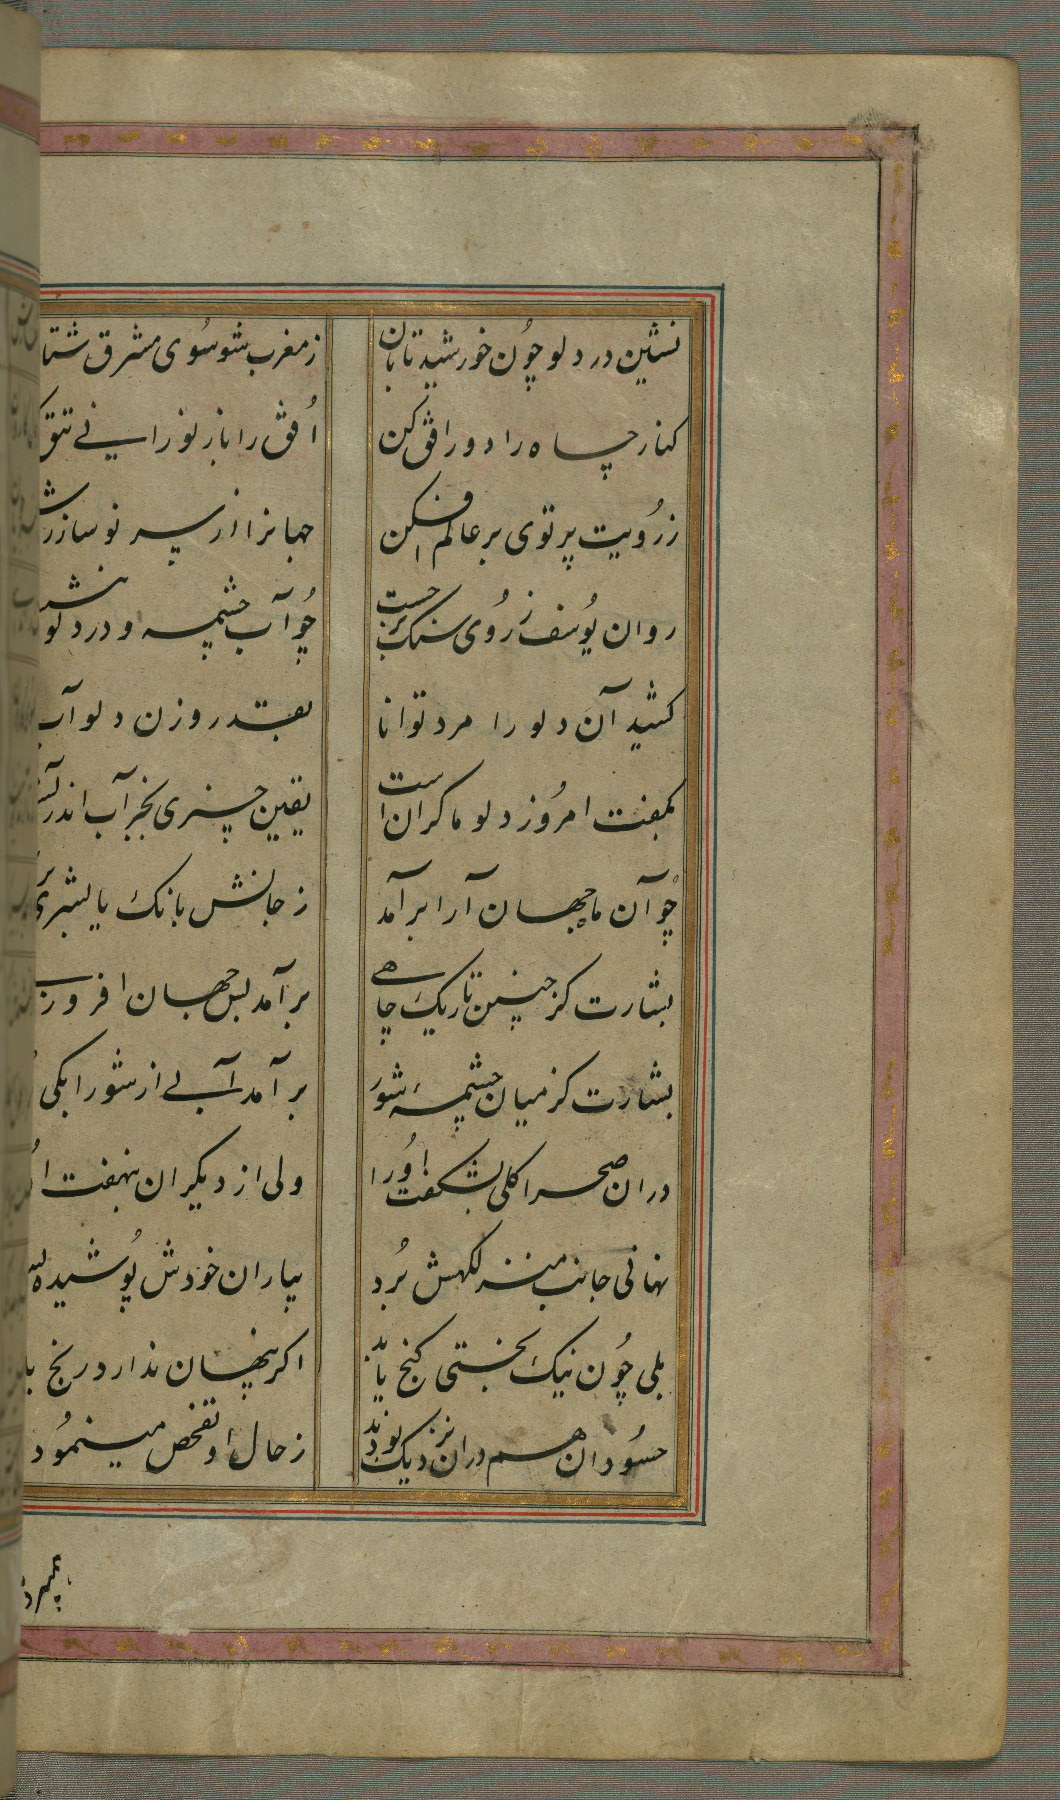 نشین در دلو چون خورشید تابان ز مغرب شو سوی مشرق
کنار چاه را دور افق کن افق را باز نورانی تتق
ز رویت پرتوی بر عالم افکن جهانرا از سر نو ساز
روان یوسف ز روی سنک برجست چو آب چشمه و در دلو
کشید آن دلو را مرد توانا بقدر وزن دلو و آب
بگفت امروز دلو ما کرانست یقین چیزی بجز آب اندر
چو آن ماه جهان آرا برآمد ز جانش بانک یا بشری
بشارت کز چنین تاریک چاهی برآمد بس جهان افروز
بشارت کز میان چشمهٔ شور برآمد آبی از شورابکی
دران صحرا کلی بشکفت او را ولی از دیکران بنهفت
نهانی جانب منزلکهش برد بیاران خودش پوشیده
بلی چون نیک بختی کنج یابد اکر پنهان ندارد رنج
حسودان هم دران نزدیک بودند ز حال او تفحص مینمود